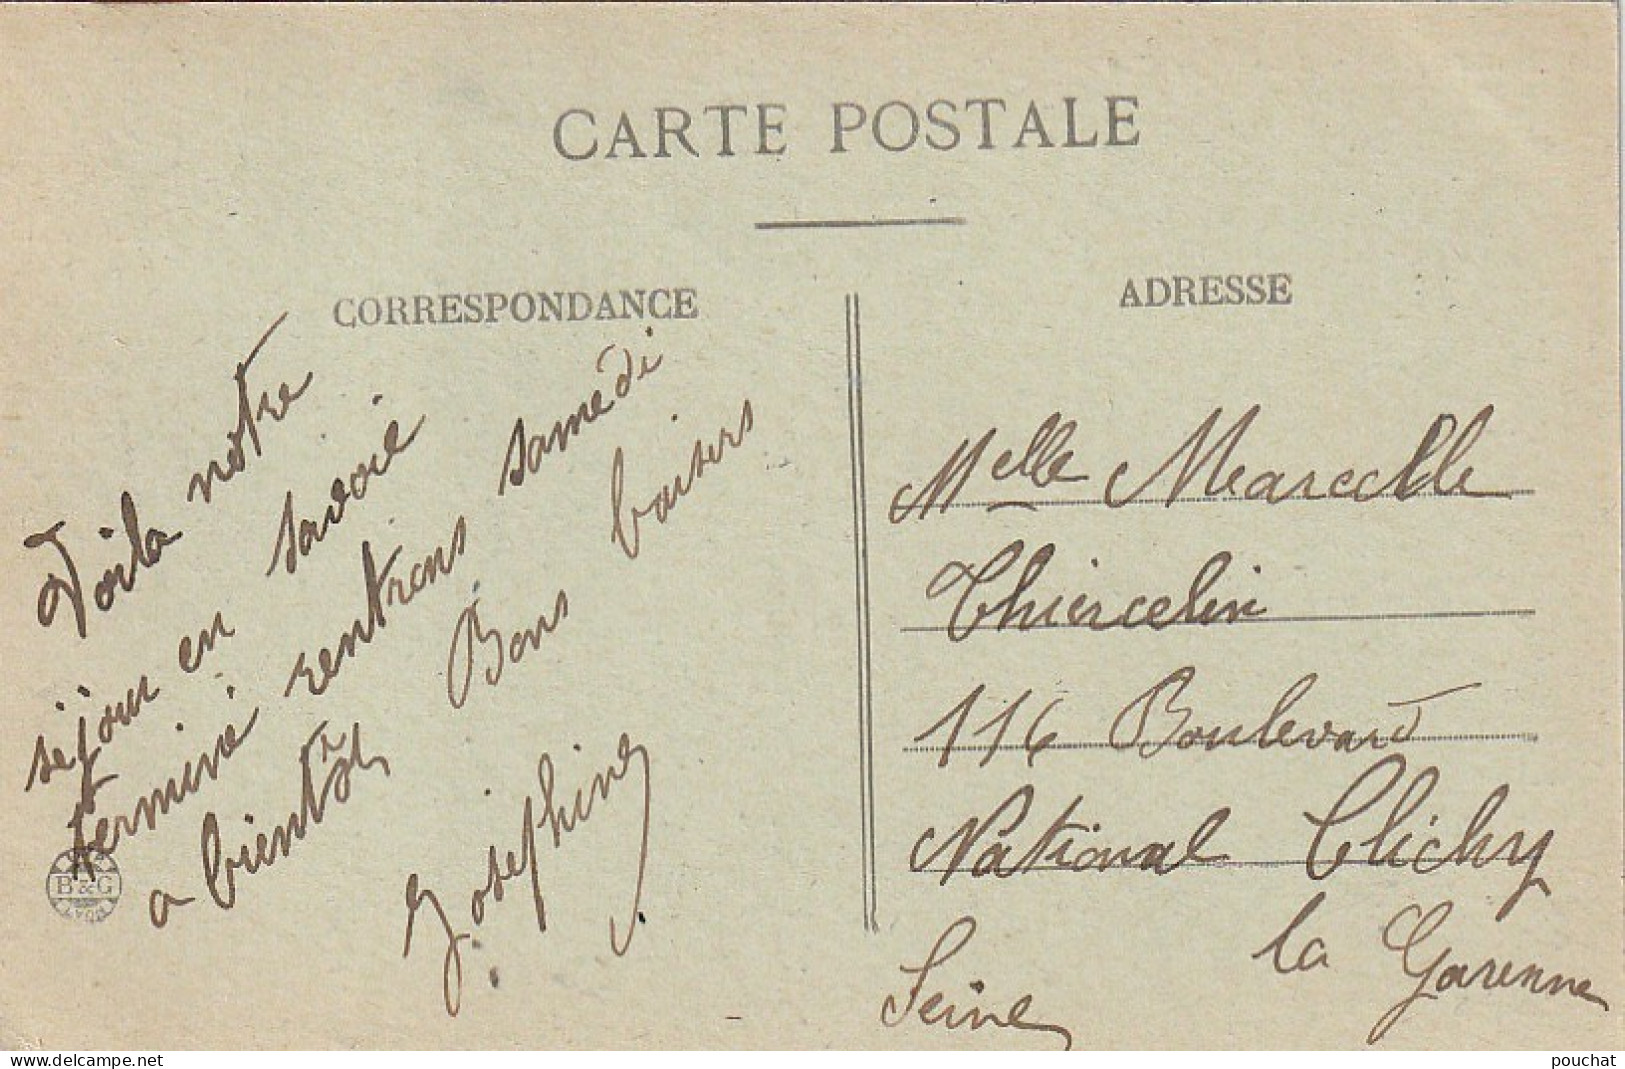 CARTE POSTALE
CORRESPONDANCE
Voila notre
séjour en savoie
terminé rentrons samedi
a bientôt Bons baisers
Josephine
ADRESSE
Melle Marcelle
Thiercelin
116 Boulevard
National Clichy
la Garenne
Seine
B & G
www.delcampe.net
pouchat